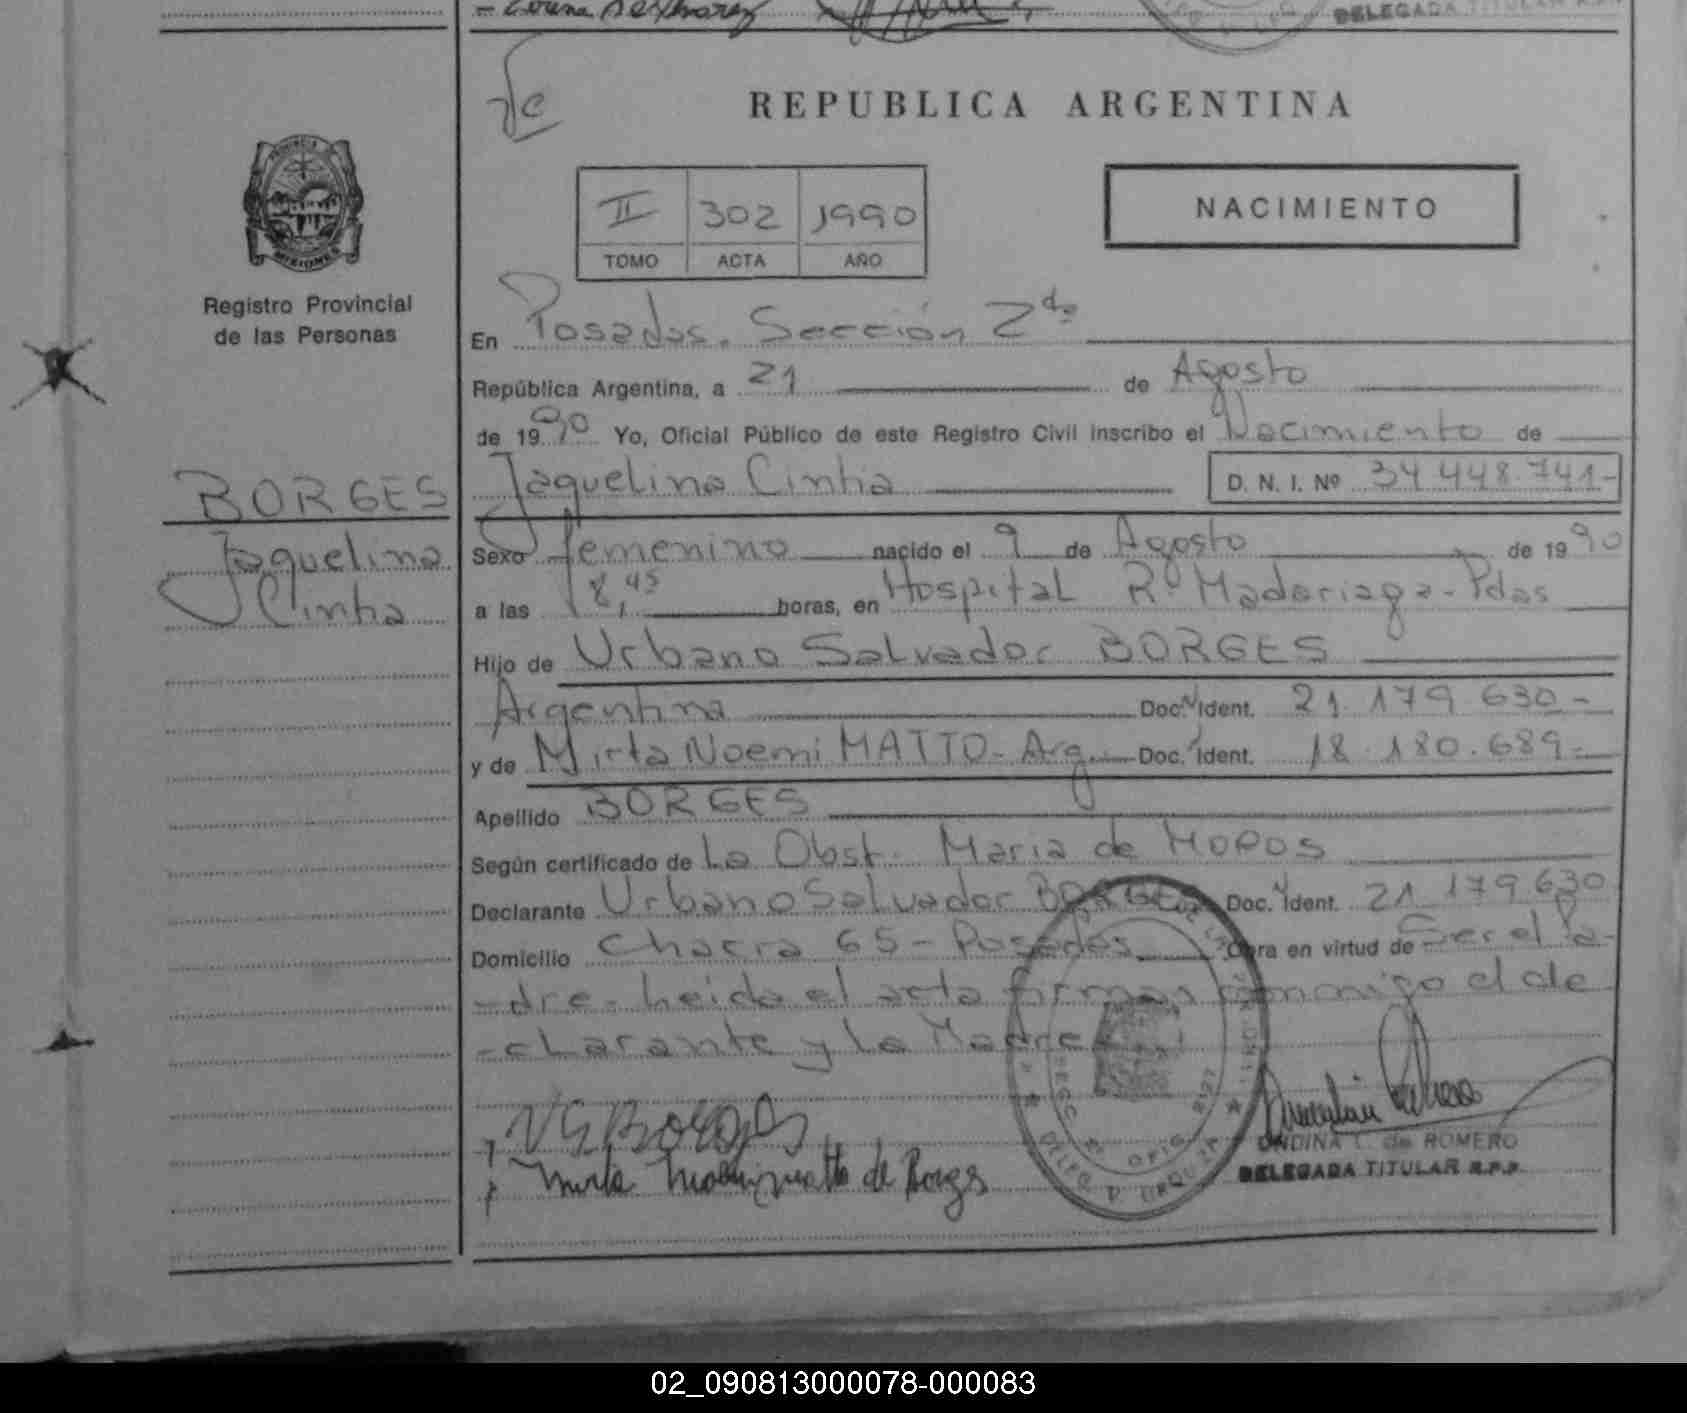 DELEGADA TITULAR R.P.P.
REPUBLICA ARGENTINA
PROVINCIA DE
MISIONES
II 302 1990
TOMO ACTA AÑO
NACIMIENTO
Registro Provincial
de las Personas
En Posadas. Sección 2da
República Argentina, a 21 de Agosto
de 1990 Yo, Oficial Público de este Registro Civil inscribo el Nacimiento de
Jaquelina Cintia D. N. I. Nº 34 448.741-
BORGES
Jaquelina
Cintia
Sexo femenino nacido el 9 de Agosto de 1990
a las 8,45 horas, en Hospital Rº Madariaga-Pdas
Hijo de Urbano Salvador BORGES
Argentina Doc. Ident. 21.179.630-
y de Mirta Noemi MATTO- Arg. Doc. Ident. 18.180.689-
Apellido BORGES
Según certificado de La Obst. Maria de
Declarante Urbano Salvador BORGES Doc. Ident. 21 179.630
Domicilio Chacra 65- Posadas Obra en virtud de Ser el Pa-
-dre- Leida el acta firman conmigo el de
-clarante y la Madre
de Borges
ONDINA C. de ROMERO
DELEGADA TITULAR R.P.P.
02_090813000078-000083